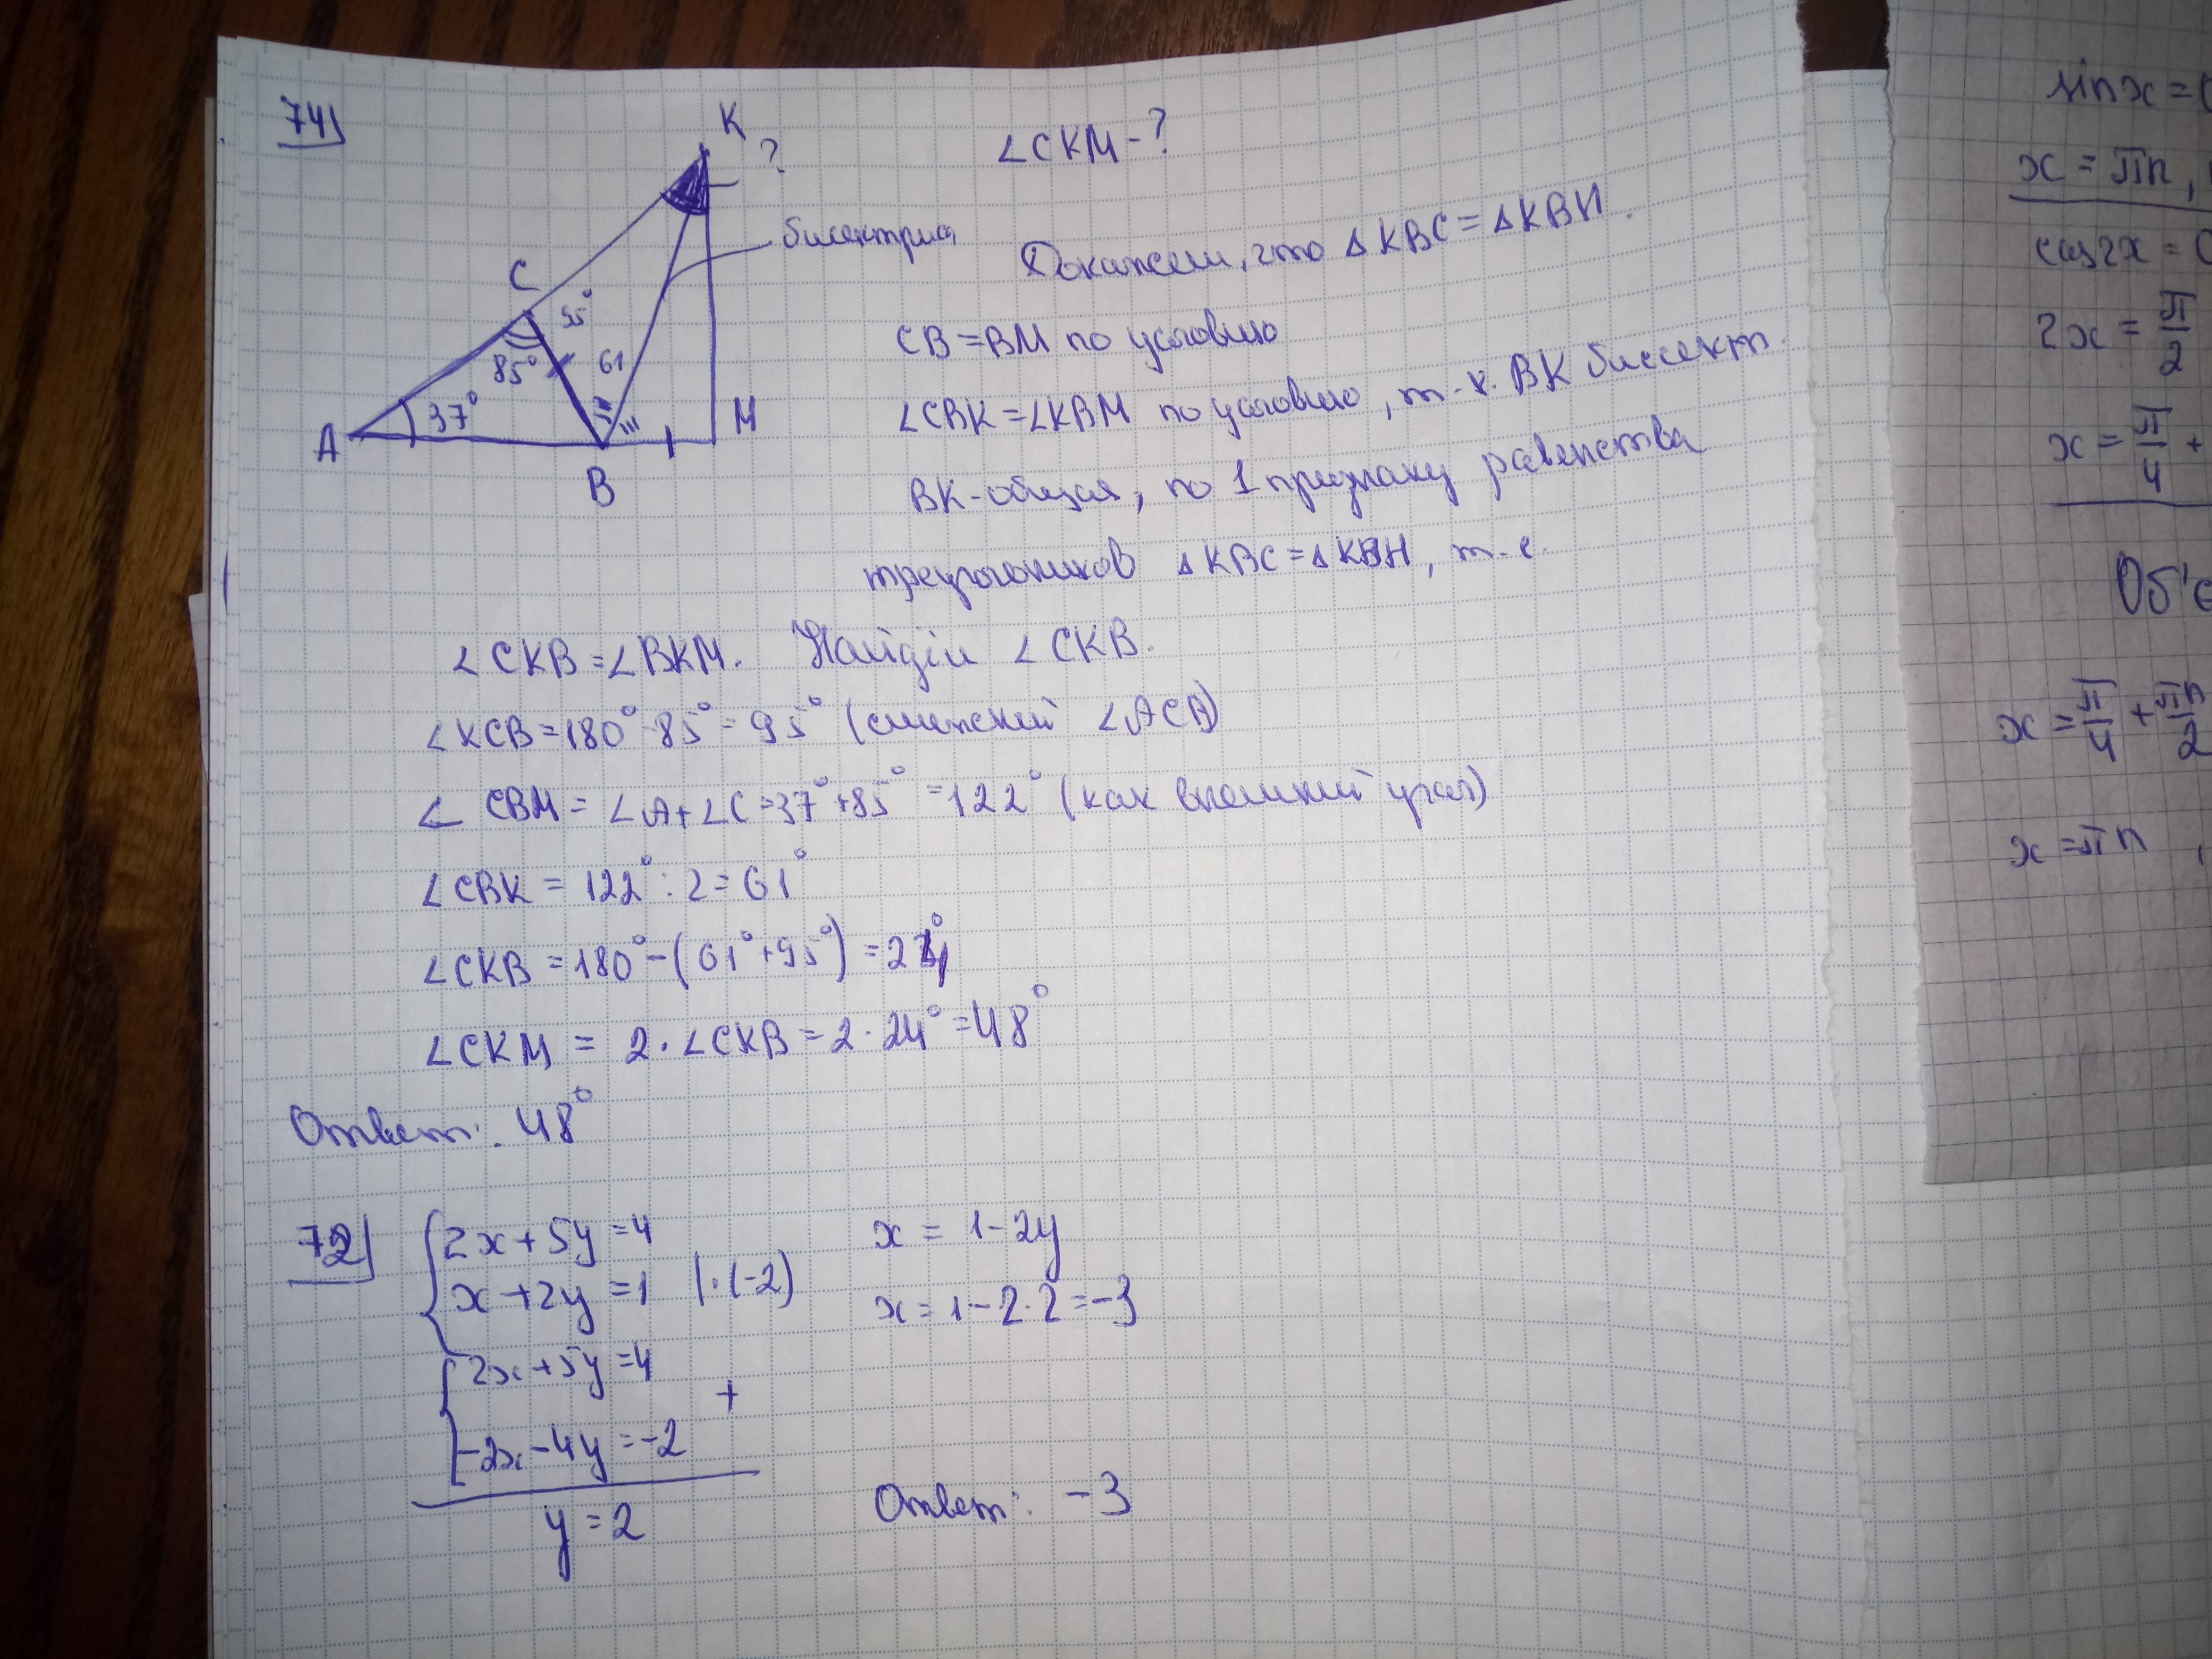 74
K
?
∠CKM - ?
биссектриса
Докажем, что ΔKBC = ΔKBM.
C
95°
85°
61
CB = BM по условию
37°
A
M
∠CBK = ∠KBM по условию, т-к. BK биссект.
B
BK - общая, по 1 признаку равенства
треугольников ΔKBC = ΔKBM, т-е.
∠CKB = ∠BKM. Найдём ∠CKB.
∠KCB = 180° - 85° = 95° (смежский ∠ACB)
∠CBM = ∠A + ∠C = 37° + 85° = 122° (как внешний угол)
∠CBK = 122° : 2 = 61°
∠CKB = 180° - (61° + 95°) = 24°
∠CKM = 2 · ∠CKB = 2 · 24° = 48°
Ответ: 48°
72
2x + 5y = 4
x + 2y = 1 | · (-2)
2x + 5y = 4
+
-2x - 4y = -2
y = 2
x = 1 - 2y
x = 1 - 2 · 2 = -3
Ответ: -3
sin x = 0
x = πn,
cos 2x = 0
2x = π/2
x = π/4 +
Об'є
x = π/4 + πn/2
x = πn,